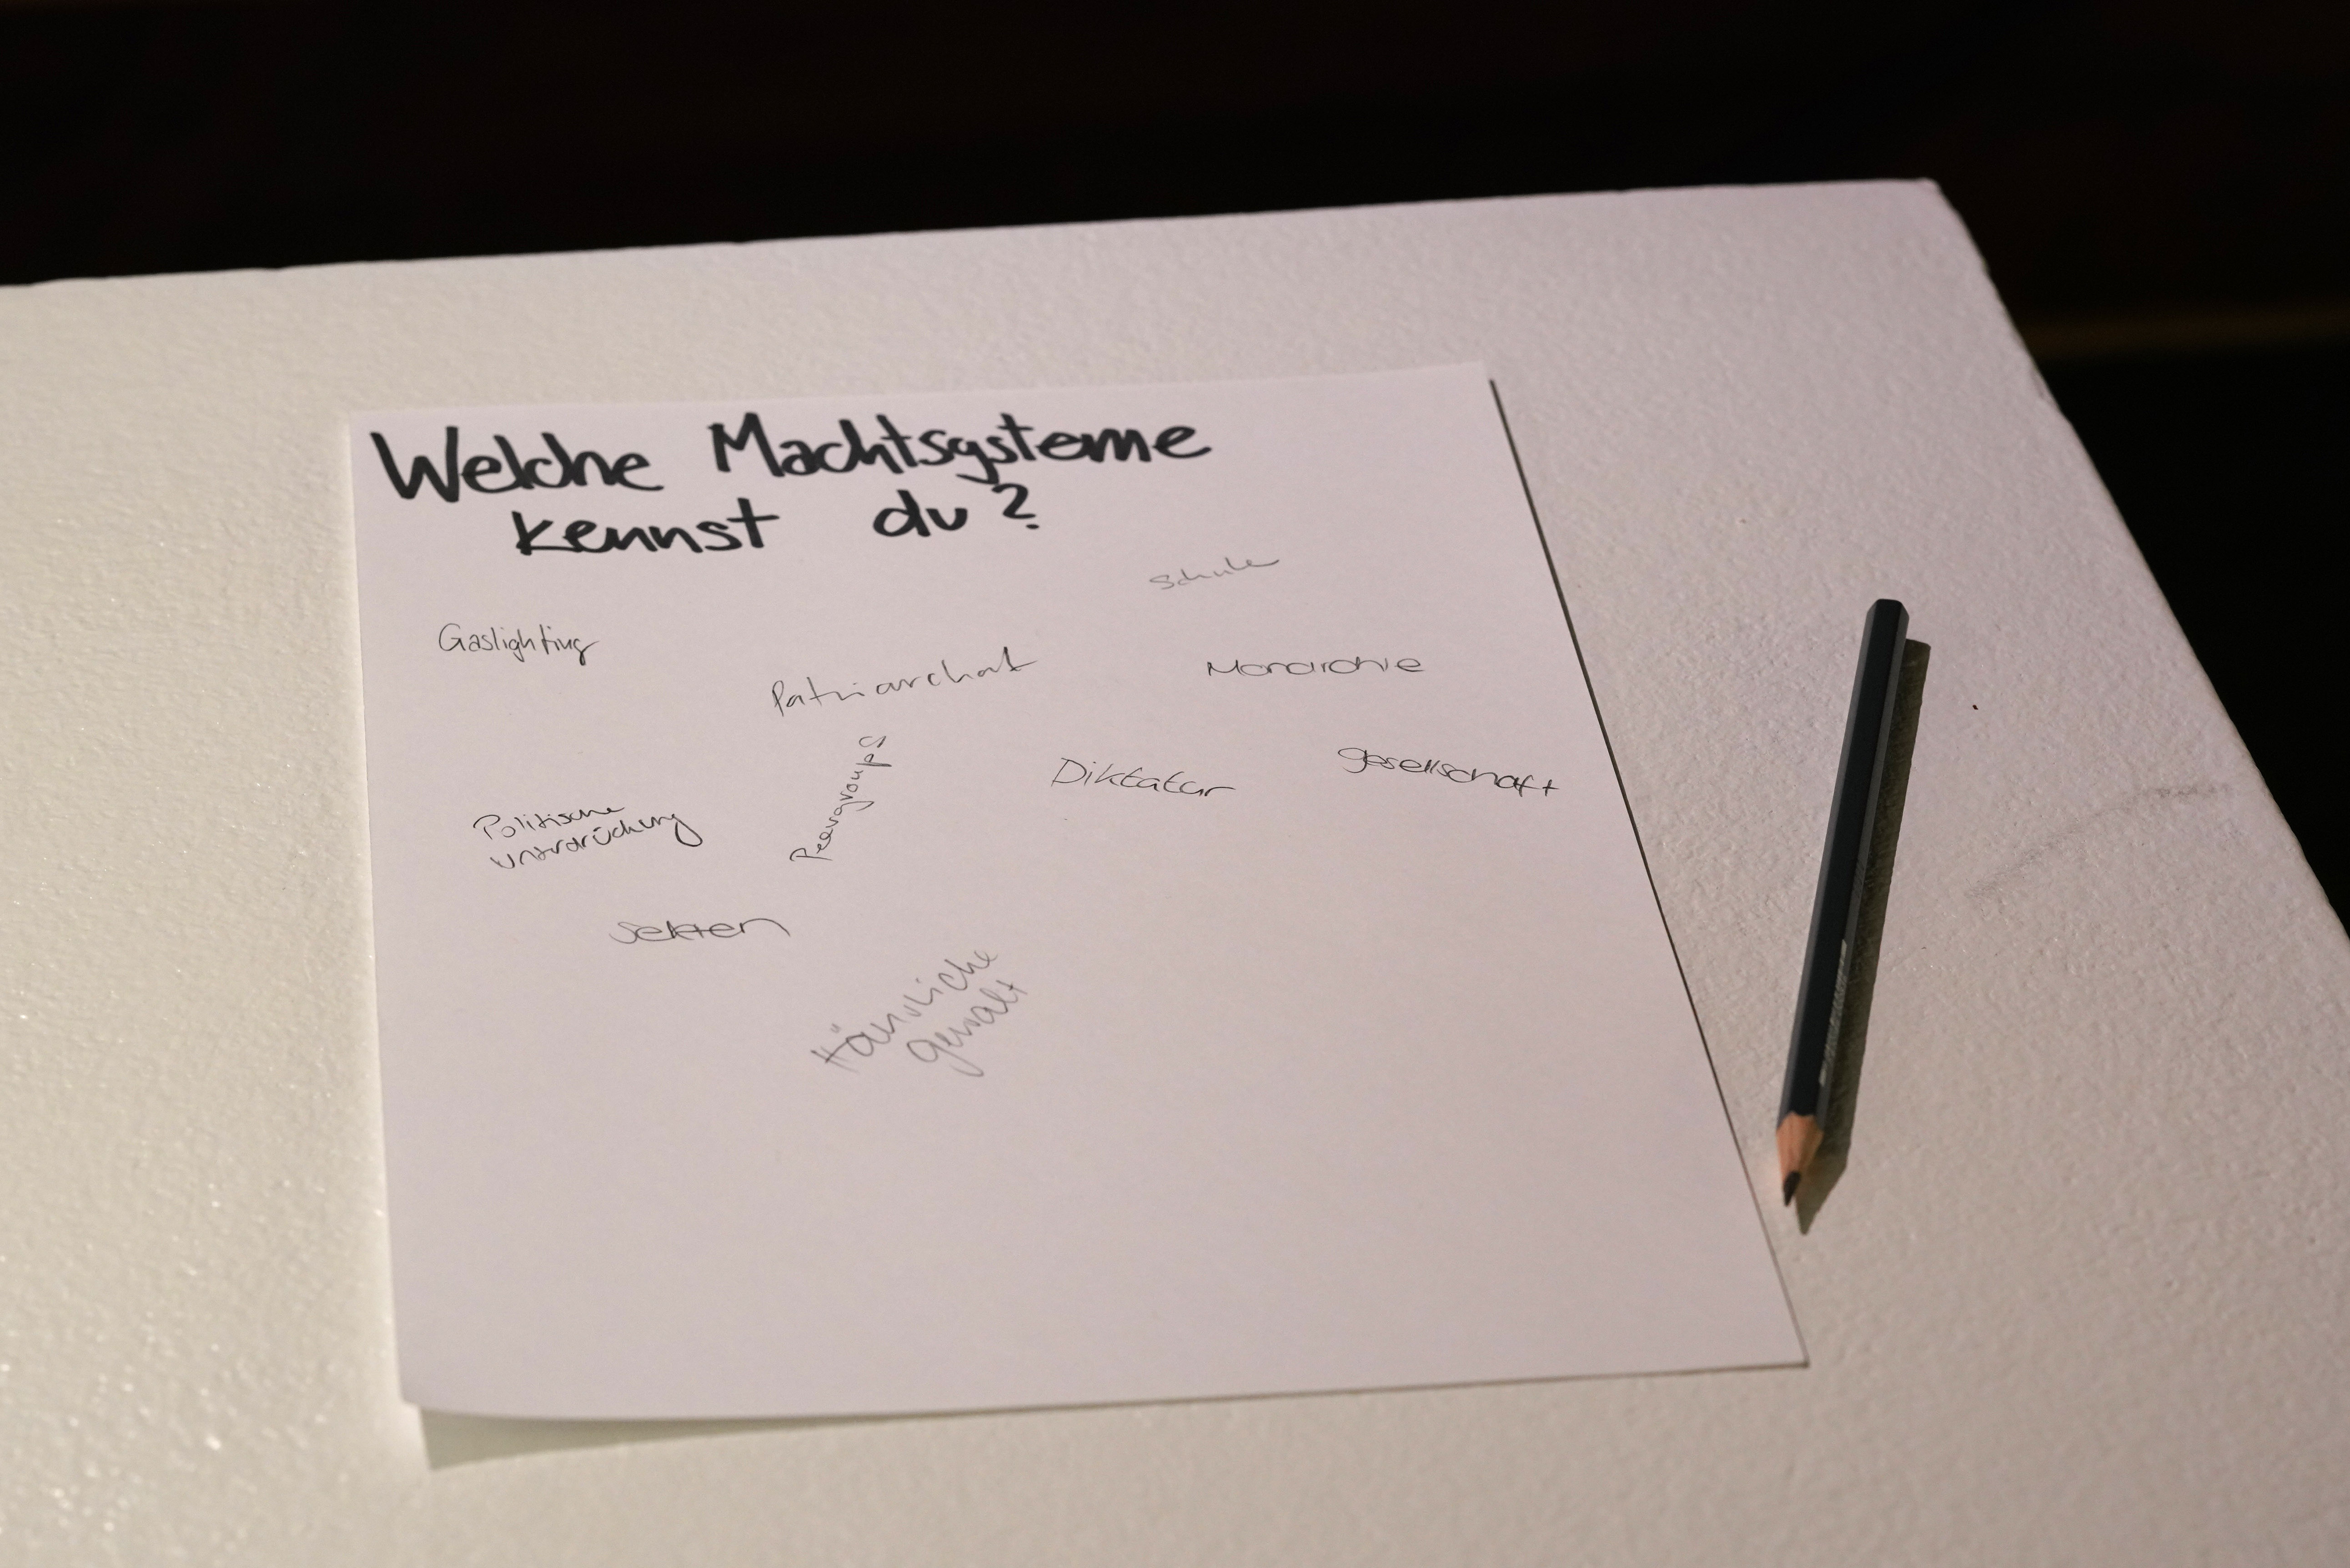 Welche Machtsysteme
kennst du?
Schule
Gaslighting
Patriarchat
Monarchie
Peergroups
Diktatur
gesellschaft
Politische
unterdrückung
Sekten
Häusliche
gewalt